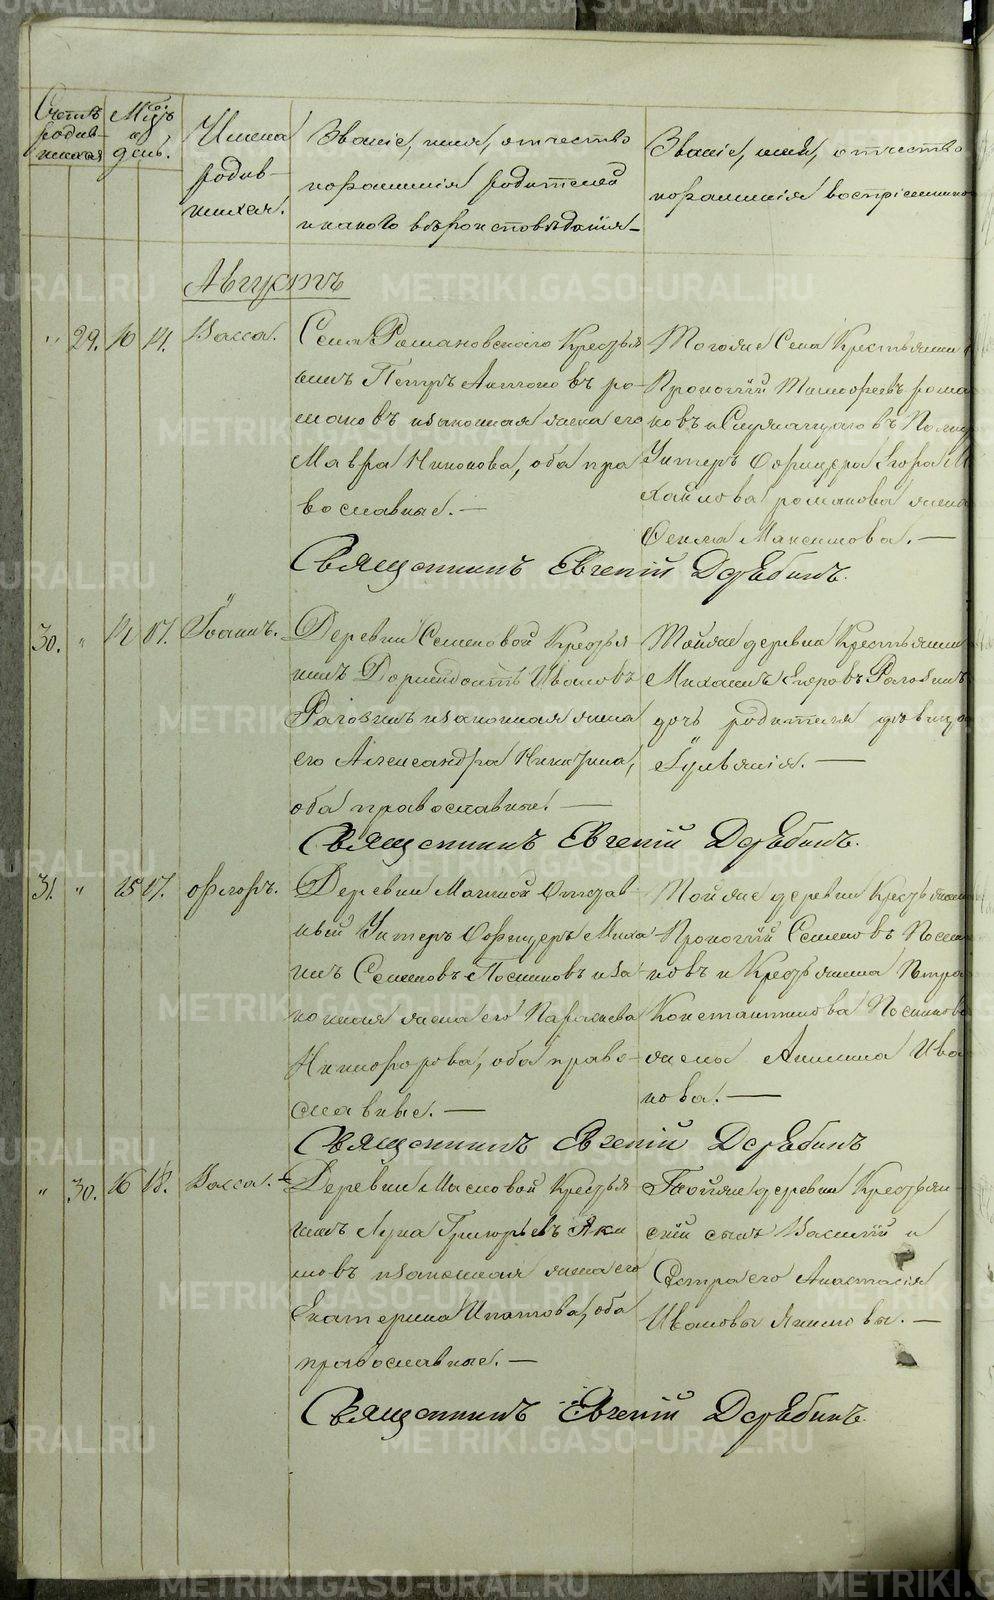 METRIKI.GASO-URAL.RU
Счетъ родив-шихся
Мѣсяцъ и день.
Имена родив-шихся.
Званіе, имя, отчество
и фамилія родителей
и какого вѣроисповѣданія
Званіе, имя, отчество
и фамилія воспріемников
Августъ
" 29. 10 14. Васса.
Села Романовскаго Крестья
нинъ Петръ Антоновъ Ро-
мановъ и законная жена его
Мавра Никонова, оба пра
вославные. —
Тогоже Села Крестьянинъ
Прокопій Тимофеевъ Рома
новъ и Служащаго въ
Унтеръ Офицера Егора Ми
хайлова Романова жена
Максимова. —
Священникъ Евгеній Дерябинъ.
30. " 12 17. Іоаннъ.
Деревни Семеновой Крестья
нинъ Дормидонтъ Ивановъ
Рагозинъ и законная жена
его Александра Никитина,
оба православные. —
Тойже деревни Крестьянинъ
Михаилъ Егоровъ Рагозинъ
дочь родителя дѣвица
Іуліанія. —
Священникъ Евгеній Дерябинъ.
31. " 15 17. Флоръ.
Деревни Отстав-
ный Унтеръ Офицеръ Миха
илъ Семеновъ Посниковъ и за
конная жена его Параскева
Никифорова, оба право-
славные. —
Тойже деревни Крестьянинъ
Прокопій Семеновъ Посни
ковъ и Крестьянина Петра
Константинова Посникова
жена Анисья Ива
нова. —
Священникъ Евгеній Дерябинъ
" 30. 16 18. Васса.
Деревни Мысовой Крестья
нинъ Лука Григорьевъ Яки
мовъ и законная жена его
Екатерина Ипатова, оба
православные. —
Тойже деревни Крестьян-
скій сынъ Василій и
Сестра его Анастасія
Ивановы Якимовы. —
Священникъ Евгеній Дерябинъ.